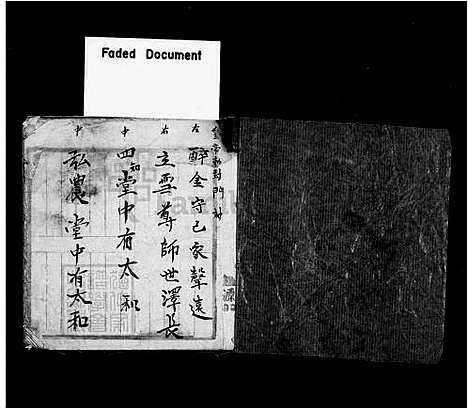 Faded Document
左 右 中 中
辭金守己家聲遠
立雪尊師世澤長
四知堂中有太和
弘農堂中有太和